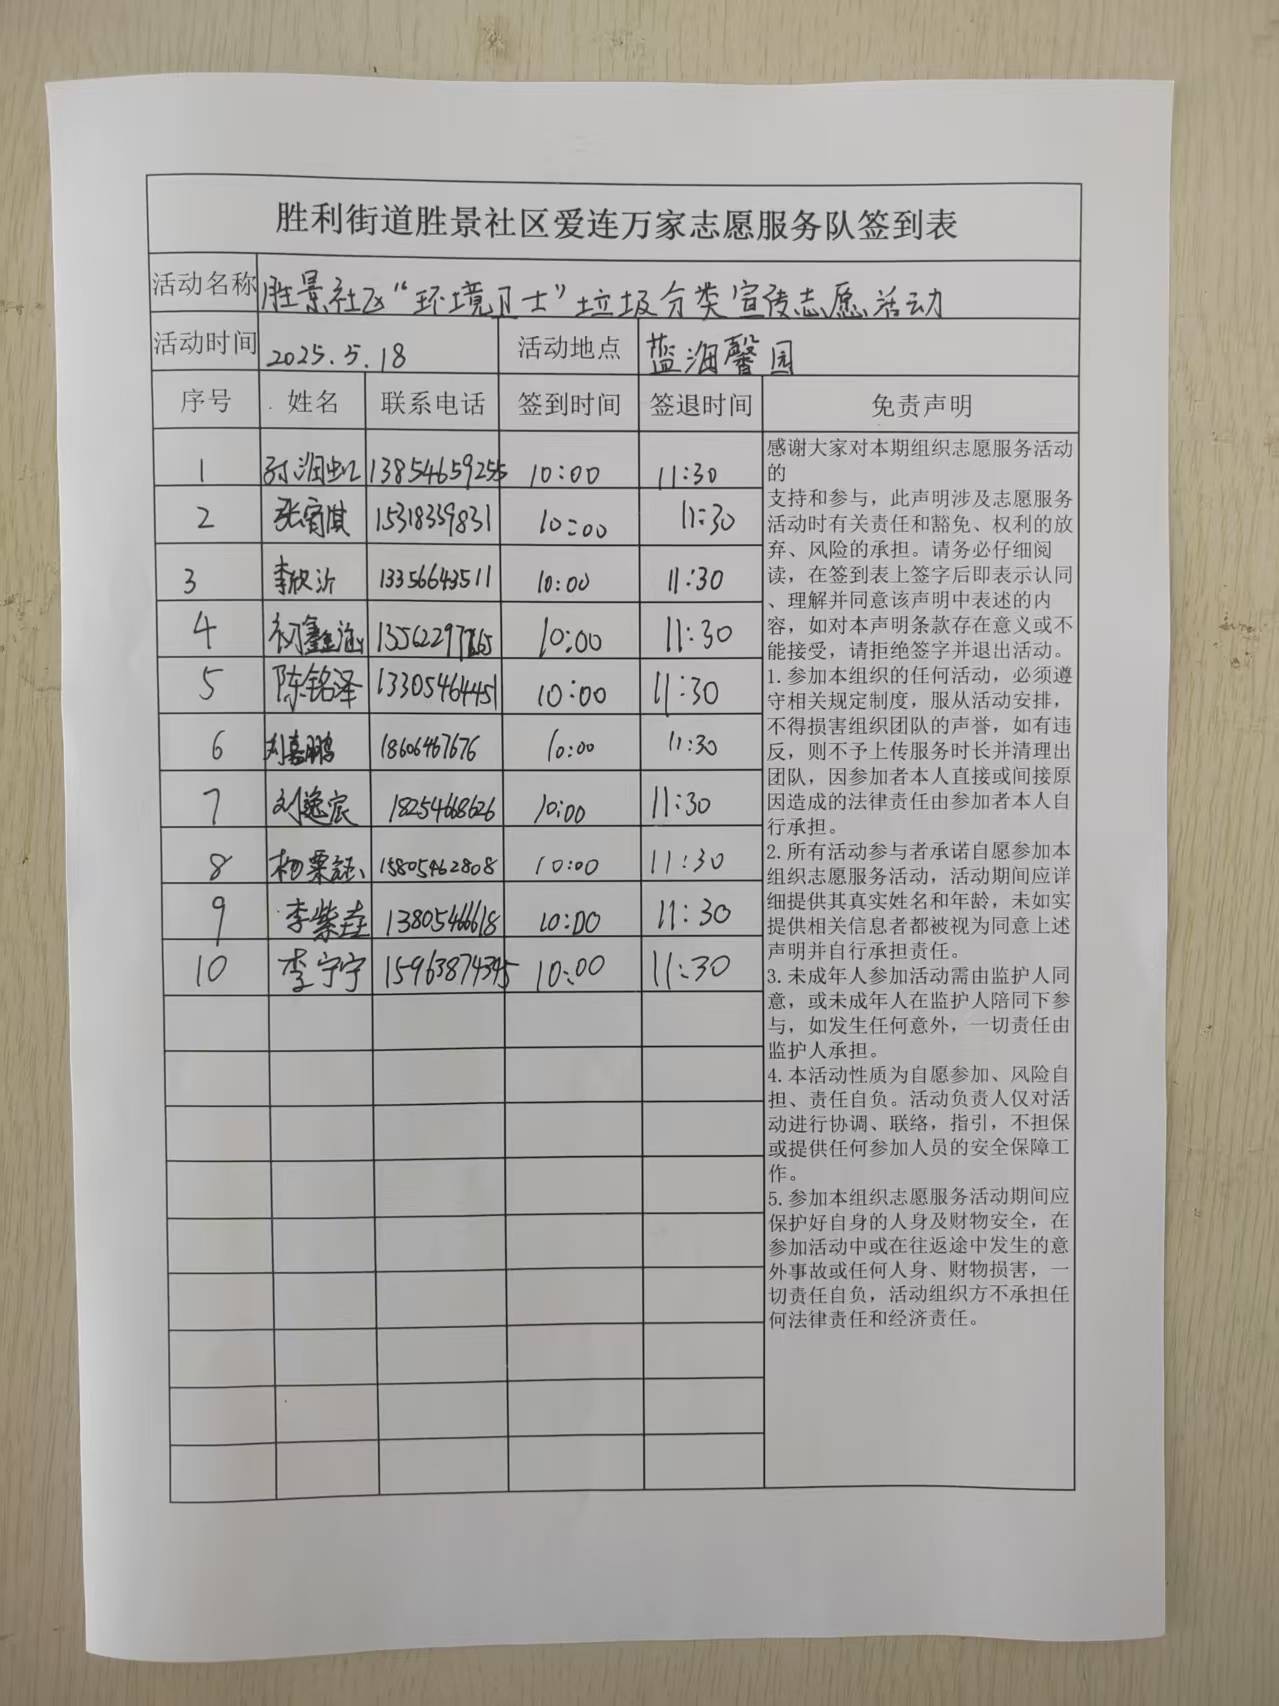 胜利街道胜景社区爱连万家志愿服务队签到表
活动名称 胜景社区“环境卫士”垃圾分类宣传志愿活动
活动时间 2025.5.18 活动地点 蓝海馨园
序号 姓名 联系电话 签到时间 签退时间 免责声明
1 13854659255 10:00 11:30
2 张宥淇 15318339831 10:00 11:30
3 李欣沂 13356643511 10:00 11:30
4 10:00 11:30
5 陈铭泽 13305464451 10:00 11:30
6 刘嘉鹏 18606467676 10:00 11:30
7 刘逸宸 18254668626 10:00 11:30
8 15805462808 10:00 11:30
9 李紫垚 13805466618 10:00 11:30
10 李宁宁 15963874345 10:00 11:30
感谢大家对本期组织志愿服务活动
的
支持和参与，此声明涉及志愿服务
活动时有关责任和豁免、权利的放
弃、风险的承担。请务必仔细阅
读，在签到表上签字后即表示认同
、理解并同意该声明中表述的内
容，如对本声明条款存在意义或不
能接受，请拒绝签字并退出活动。
1.参加本组织的任何活动，必须遵
守相关规定制度，服从活动安排，
不得损害组织团队的声誉，如有违
反，则不予上传服务时长并清理出
团队，因参加者本人直接或间接原
因造成的法律责任由参加者本人自
行承担。
2.所有活动参与者承诺自愿参加本
组织志愿服务活动，活动期间应详
细提供其真实姓名和年龄，未如实
提供相关信息者都被视为同意上述
声明并自行承担责任。
3.未成年人参加活动需由监护人同
意，或未成年人在监护人陪同下参
与，如发生任何意外，一切责任由
监护人承担。
4.本活动性质为自愿参加、风险自
担、责任自负。活动负责人仅对活
动进行协调、联络，指引，不担保
或提供任何参加人员的安全保障工
作。
5.参加本组织志愿服务活动期间应
保护好自身的人身及财物安全，在
参加活动中或在往返途中发生的意
外事故或任何人身、财物损害，一
切责任自负，活动组织方不承担任
何法律责任和经济责任。